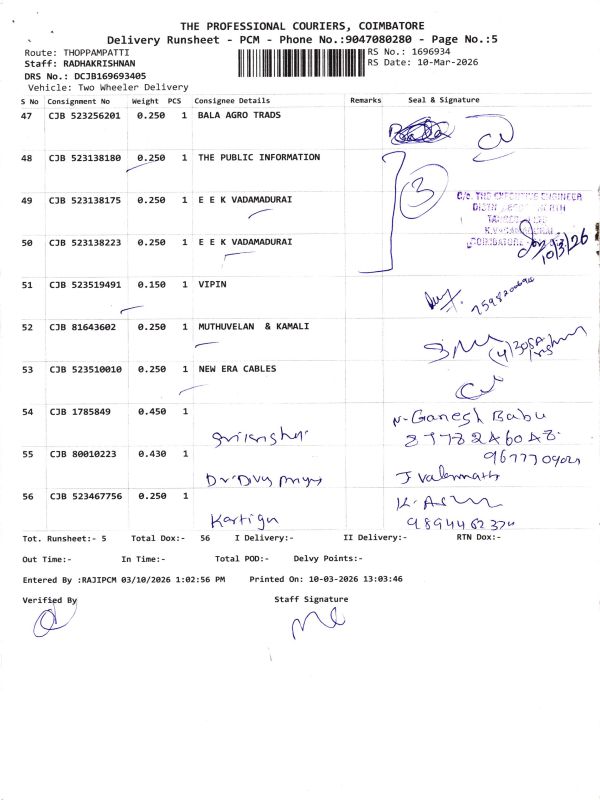 THE PROFESSIONAL COURIERS, COIMBATORE
Delivery Runsheet - PCM - Phone No.:9047080280 - Page No.:5
Route: THOPPAMPATTI RS No.: 1696934
Staff: RADHAKRISHNAN RS Date: 10-Mar-2026
DRS No.: DCJB169693405
Vehicle: Two Wheeler Delivery
S No Consignment No Weight PCS Consignee Details Remarks Seal & Signature
47 CJB 523256201 0.250 1 BALA AGRO TRADS
48 CJB 523138180 0.250 1 THE PUBLIC INFORMATION
3
49 CJB 523138175 0.250 1 E E K VADAMADURAI
O/o. THE EXECUTIVE ENGINEER
50 CJB 523138223 0.250 1 E E K VADAMADURAI
COIMBATORE
10/3/26
51 CJB 523519491 0.150 1 VIPIN
52 CJB 81643602 0.250 1 MUTHUVELAN & KAMALI
53 CJB 523510010 0.250 1 NEW ERA CABLES
54 CJB 1785849 0.450 1 N-Ganesh Babu
55 CJB 80010223 0.430 1
56 CJB 523467756 0.250 1
Tot. Runsheet:- 5 Total Dox:- 56 I Delivery:- II Delivery:- RTN Dox:-
Out Time:- In Time:- Total POD:- Delvy Points:-
Entered By :RAJIPCM 03/10/2026 1:02:56 PM Printed On: 10-03-2026 13:03:46
Verified By Staff Signature